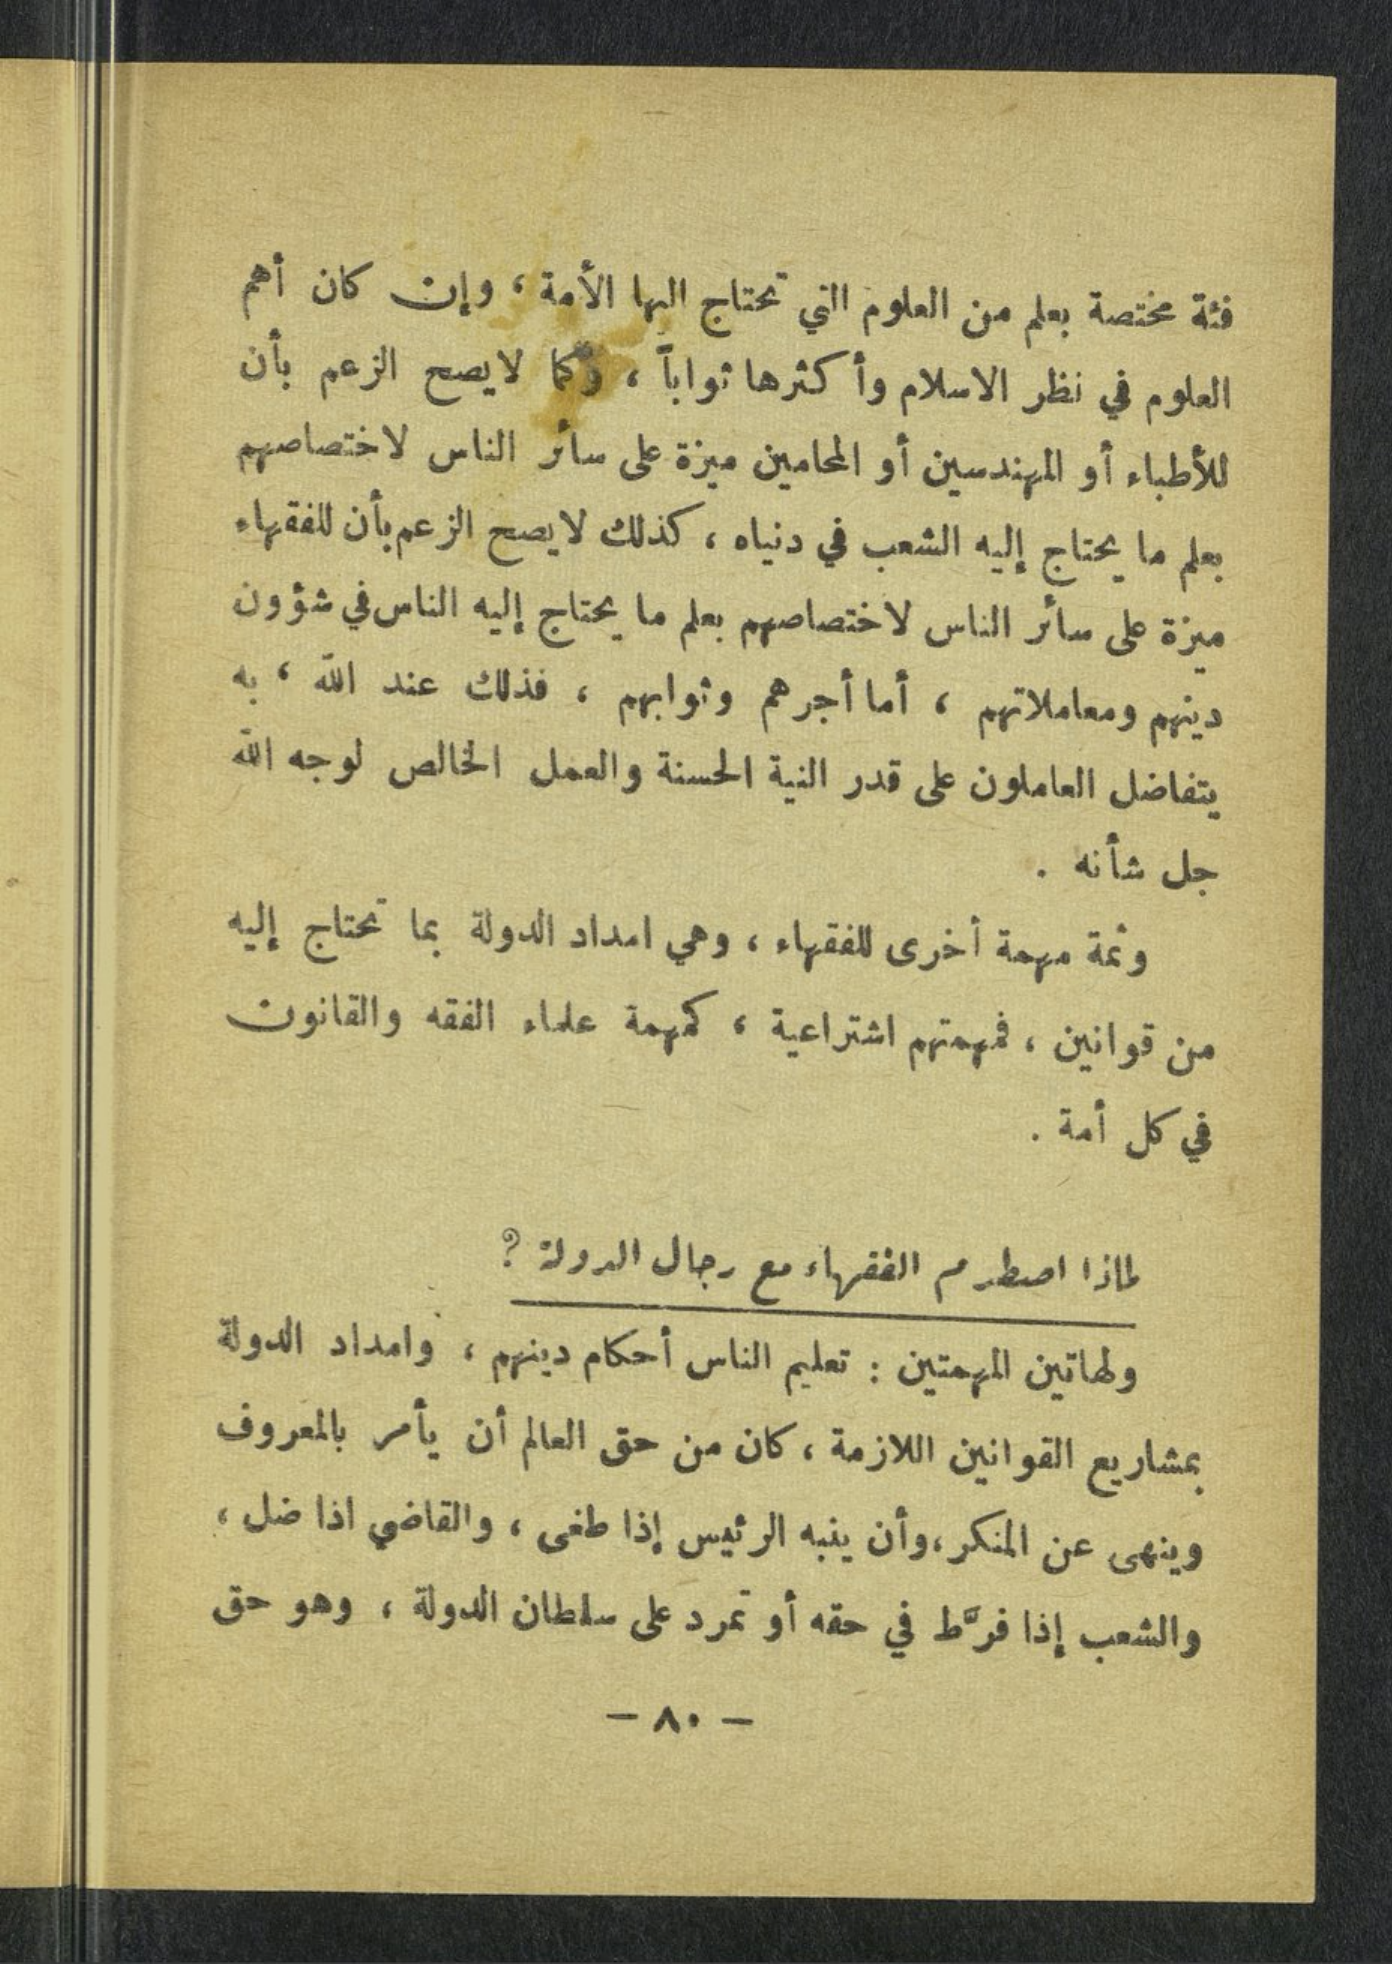 فئة مختصة بعلم من العلوم التي تحتاج اليها الأمة ، وإن كان أهم
العلوم في نظر الاسلام وأكثرها ثواباً ، وكما لا يصح الزعم بأن
للأطباء أو المهندسين أو المحامين ميزة على سائر الناس لاختصاصهم
بعلم ما يحتاج إليه الشعب في دنياه ، كذلك لا يصح الزعم بأن للفقهاء
ميزة على سائر الناس لاختصاصهم بعلم ما يحتاج إليه الناس في شؤون
دينهم ومعاملاتهم ، أما أجرهم وثوابهم ، فذلك عند الله ، به
يتفاضل العاملون على قدر النية الحسنة والعمل الخالص لوجه الله
جل شأنه .
وثمة مهمة أخرى للفقهاء ، وهي امداد الدولة بما تحتاج إليه
من قوانين ، فمهمتهم اشتراعية ، كمهمة علماء الفقه والقانون
في كل أمة .
لماذا اصطدم الفقهاء مع رجال الدولة ؟
ولهاتين المهمتين : تعليم الناس أحكام دينهم ، وامداد الدولة
بمشاريع القوانين اللازمة ، كان من حق العالم أن يأمر بالمعروف
وينهى عن المنكر ، وأن ينبه الرئيس إذا طغى ، والقاضي اذا ضل ،
والشعب إذا فرَّط في حقه أو تمرد على سلطان الدولة ، وهو حق
– ٨٠ –